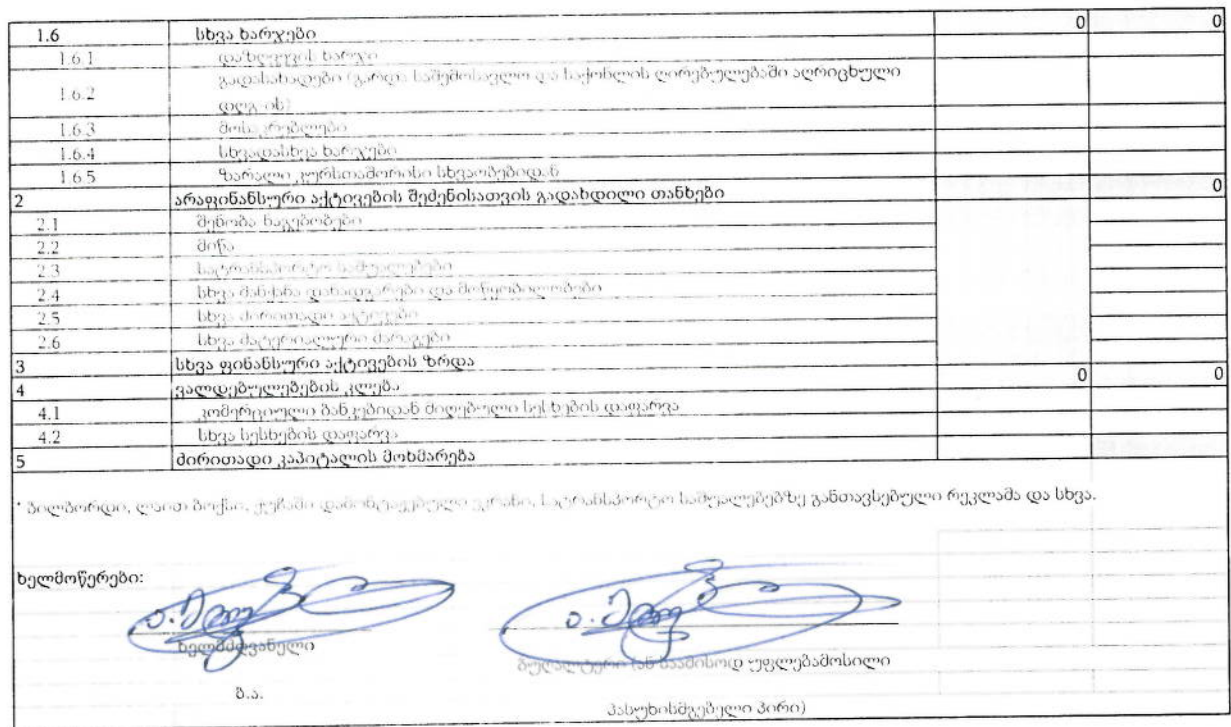 1.6 სხვა ხარჯები 0 0
1.6.1 დაზღვევის ხარჯი
გადასახადები (გარდა საშემოსავლო და საქონლის ღირებულებაში აღრიცხული
1.6.2
დღგ-ის)
1.6.3 მოსაკრებლები
1.6.4 სხვადასხვა ხარჯები
1.6.5 ზარალი კურსთაშორისი სხვაობებიდან
2 არაფინანსური აქტივების შეძენისათვის გადახდილი თანხები 0
2.1 შენობა ნაგებობები
2.2 მიწა
2.3 სატრანსპორტო საშუალებები
2.4 სხვა მანქანა დანადგარები და მოწყობილობები
2.5 სხვა ძირითადი აქტივები
2.6 სხვა მატერიალური მარაგები
3 სხვა ფინანსური აქტივების ზრდა
4 ვალდებულებების კლება 0 0
4.1 კომერციული ბანკებიდან მიღებული სესხების დაფარვა
4.2 სხვა სესხების დაფარვა
5 ძირითადი კაპიტალის მოხმარება
* ბილბორდი, ლაით ბოქსი, ქუჩაში დამონტაჟებული ეკრანი, სატრანსპორტო საშუალებებზე განთავსებული რეკლამა და სხვა.
ხელმოწერები:
ხელმძღვანელი
ბუღალტერი (ან საამისოდ უფლებამოსილი
ბ.ა.
პასუხისმგებელი პირი)